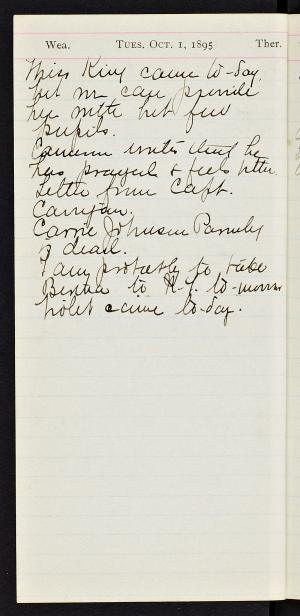 Wea. TUES. OCT. 1, 1895 Ther.
Miss King came to-day.
but we can provide
her with but few
pupils.
Cameron writes that he
has prayed & feels better
Letter from Capt.
Carrigan.
Carrie Johnson Parmly
is dead.
I am probably to take
Bennie to N.Y. to-morrow
came to-day.